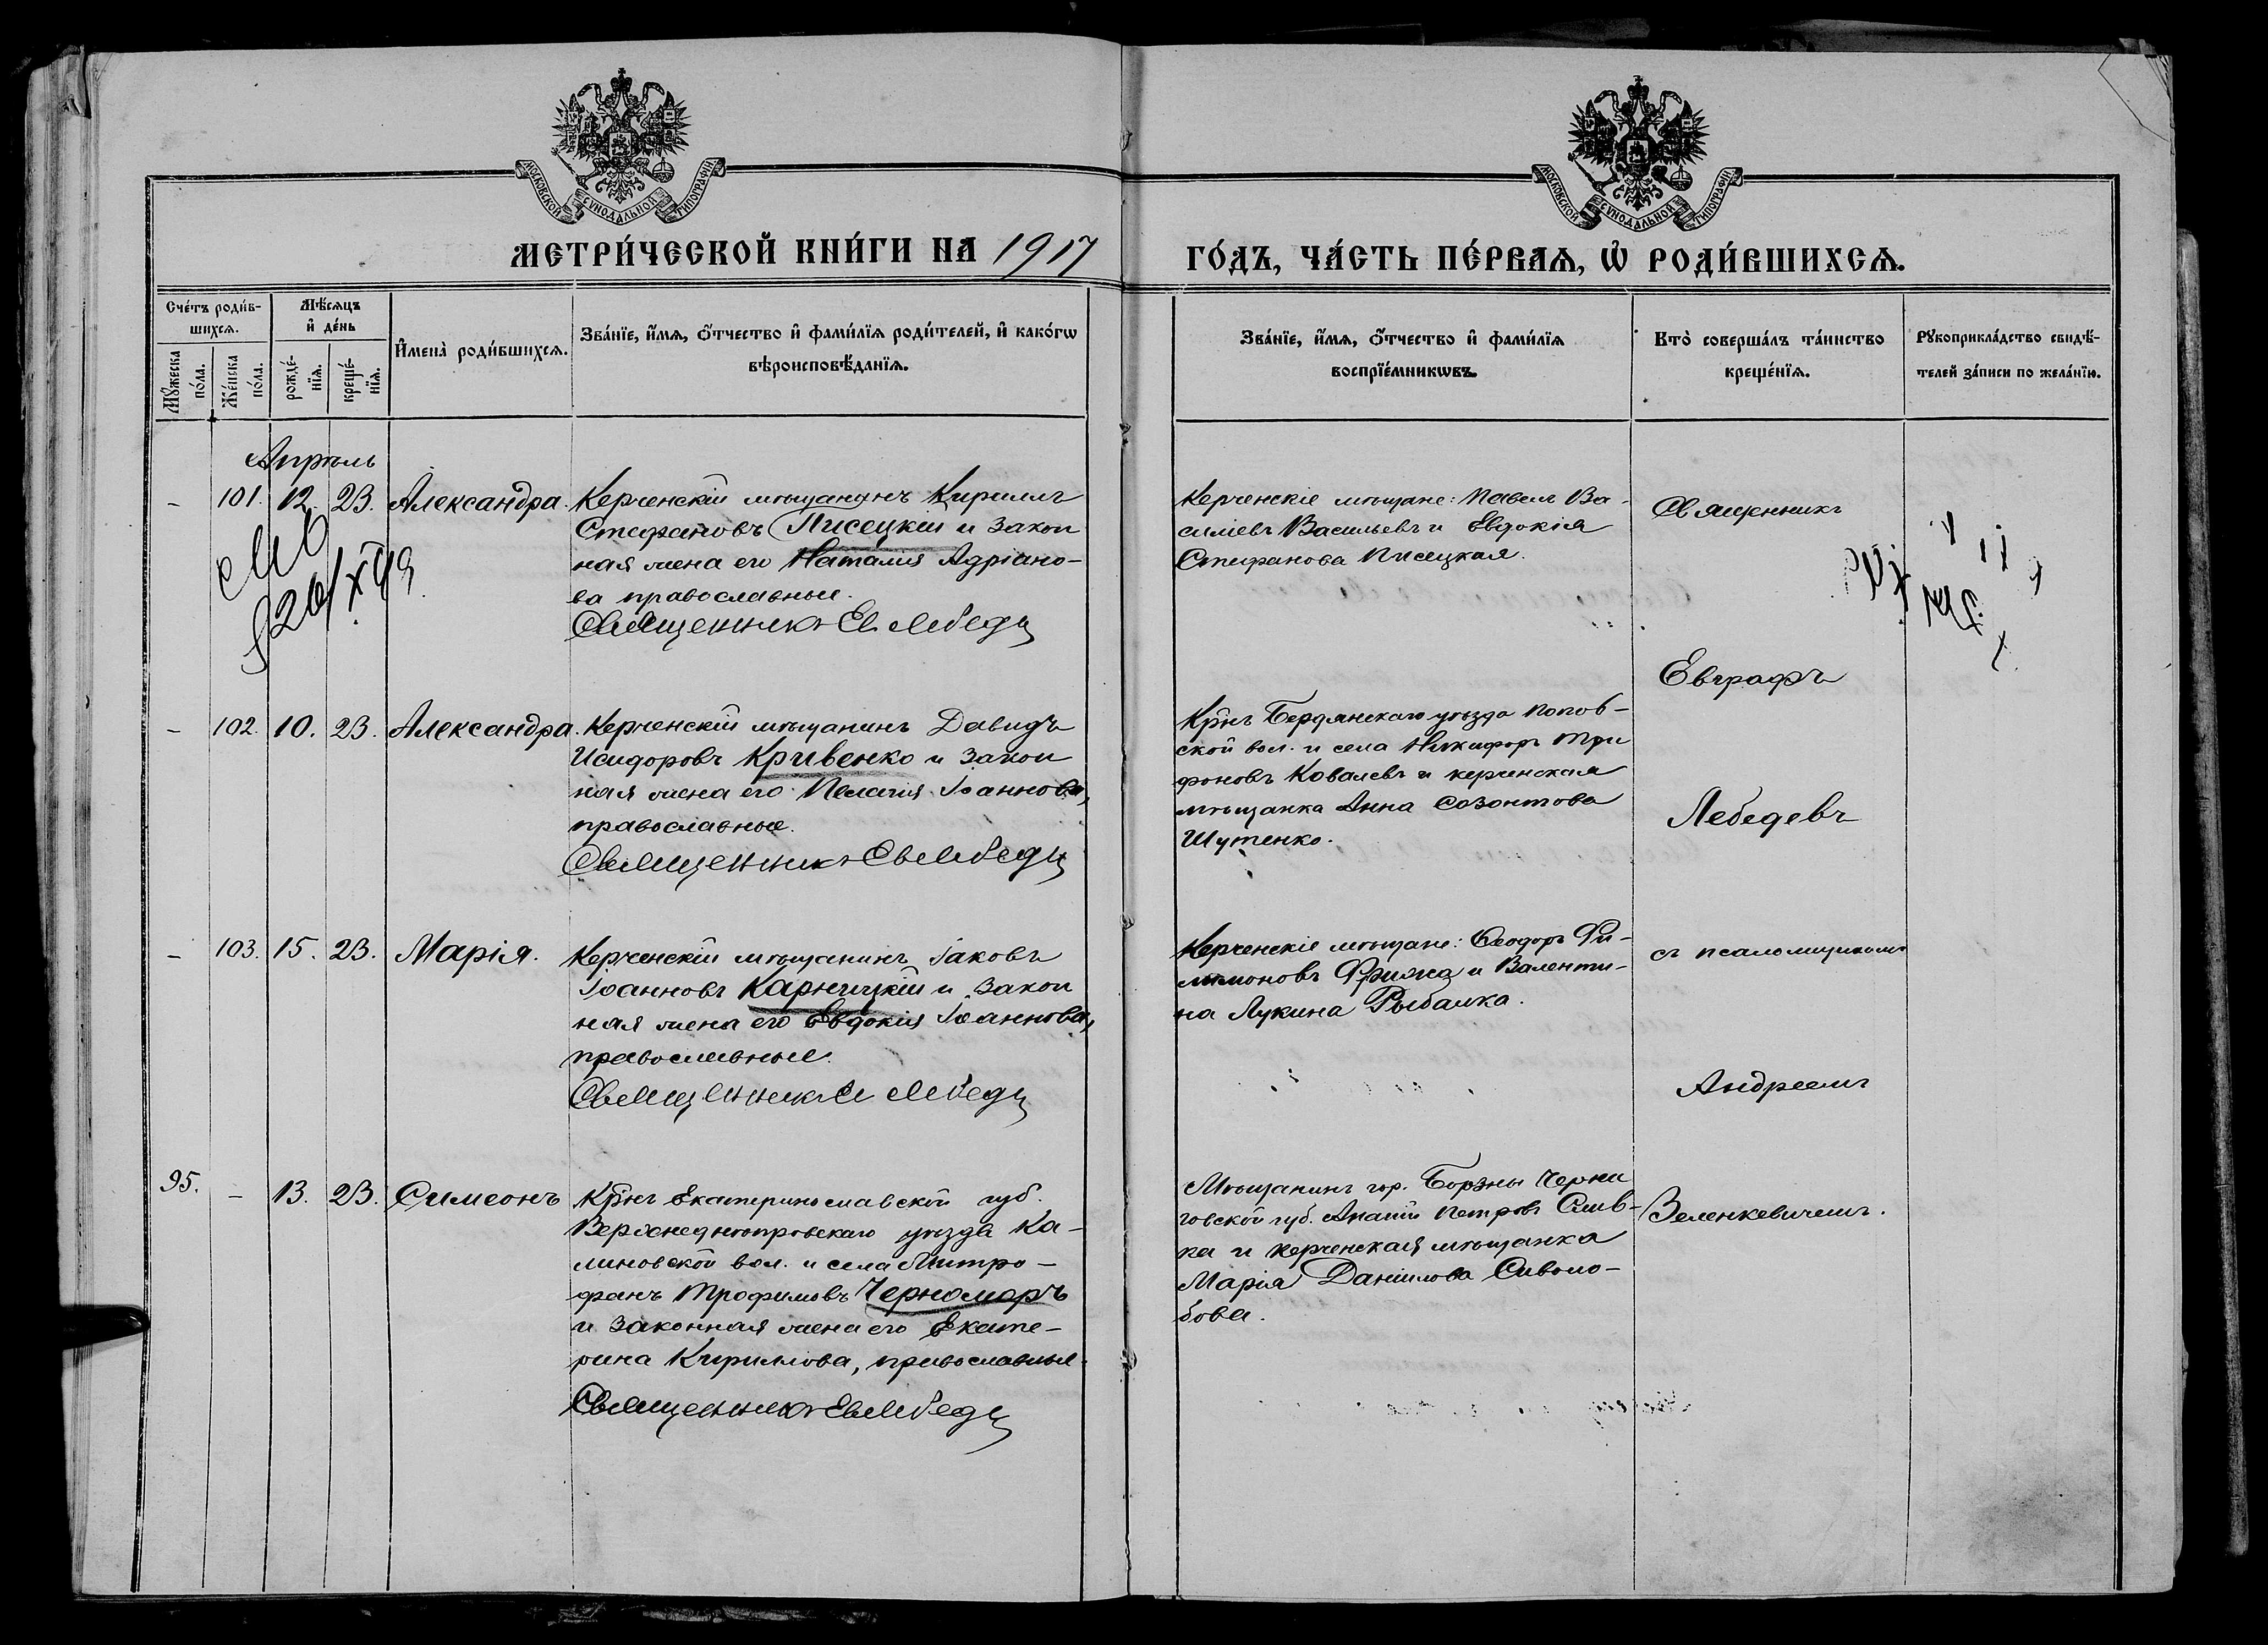 МОСКОВСКОЙ СѴНОДАЛЬНОЙ ТИПОГРАФІИ
МОСКОВСКОЙ СѴНОДАЛЬНОЙ ТИПОГРАФІИ
МЕТРИ́ЧЕСКОЙ КНИ́ГИ НА 1917
ГО́ДЪ, ЧА́СТЬ ПЕ́РВАѦ, Ѡ҆ РОДИ́ВШИХСѦ.
Сче́тъ роди́в-
шихсѧ.
Мѣ́сѧцъ
и҆ де́нь
Мꙋ́жеска
по́ла.
Же́нска
по́ла.
рожде́-
нїѧ.
креще́-
нїѧ.
И҆мена̀ роди́вшихсѧ.
Зва́нїе, и҆́мѧ, ѻ҆́тчество и҆ фами́лїѧ роди́телей, и҆ како́гѡ
вѣроисповѣ́данїѧ.
Зва́нїе, и҆́мѧ, ѻ҆́тчество и҆ фами́лїѧ
воспрїе́мникѡвъ.
Кто̀ соверша́лъ та́инство
креще́нїѧ.
Рꙋкоприкла́дство свидѣ́-
телей за́писи по жела́нїю.
Апрѣль
– 101. 12. 23. Александра.
Керченскій мѣщанинъ Кириллъ
Стефановъ Писецкій и закон
ная жена его Наталія Адріано-
ва православные.
Священникъ Ев Лебедц
Керченскіе мѣщане: Павелъ Ва-
силіевъ Васильевъ и Евдокія
Стефанова Писецкая.
Священникъ
Евграфъ
– 102. 10. 23. Александра.
Керченскій мѣщанинъ Давидъ
Исидоровъ Кривенко и закон
ная жена его Пелагія Іоаннова,
православные.
Священникъ Ев Лебедц
Крнъ Бердянскаго уѣзда Попов-
ской вол. и села Никифоръ Три
фоновъ Ковалевъ и керченская
мѣщанка Анна Созонтова
Шутенко.
Лебедевъ
– 103. 15. 23. Марія.
Керченскій мѣщанинъ Іаковъ
Іоанновъ Карницкій и закон
ная жена его Евдокія Іоаннова,
православные.
Священникъ Ев Лебедц
Керченскіе мѣщане: Ѳеодоръ Фи-
лимоновъ Фрижа и Валенти-
на Лукина Рыбалка.
съ псаломщикомъ
Андреемъ
95. – 13. 23. Симеонъ
Крнъ Екатеринославской губ.
Верхнеднѣпровскаго уѣзда Ка-
линовской вол. и села Митро-
фанъ Трофимовъ Черноморъ
и законная жена его Екате-
рина Кириллова, православные.
Священникъ Ев Лебедц
Мѣщанинъ гор. Борзны Черни
говской губ. Петровъ Слив-
ка и керченская мѣщанка
Марія Даніилова Сиволо-
бова.
Зеленкевичемъ.